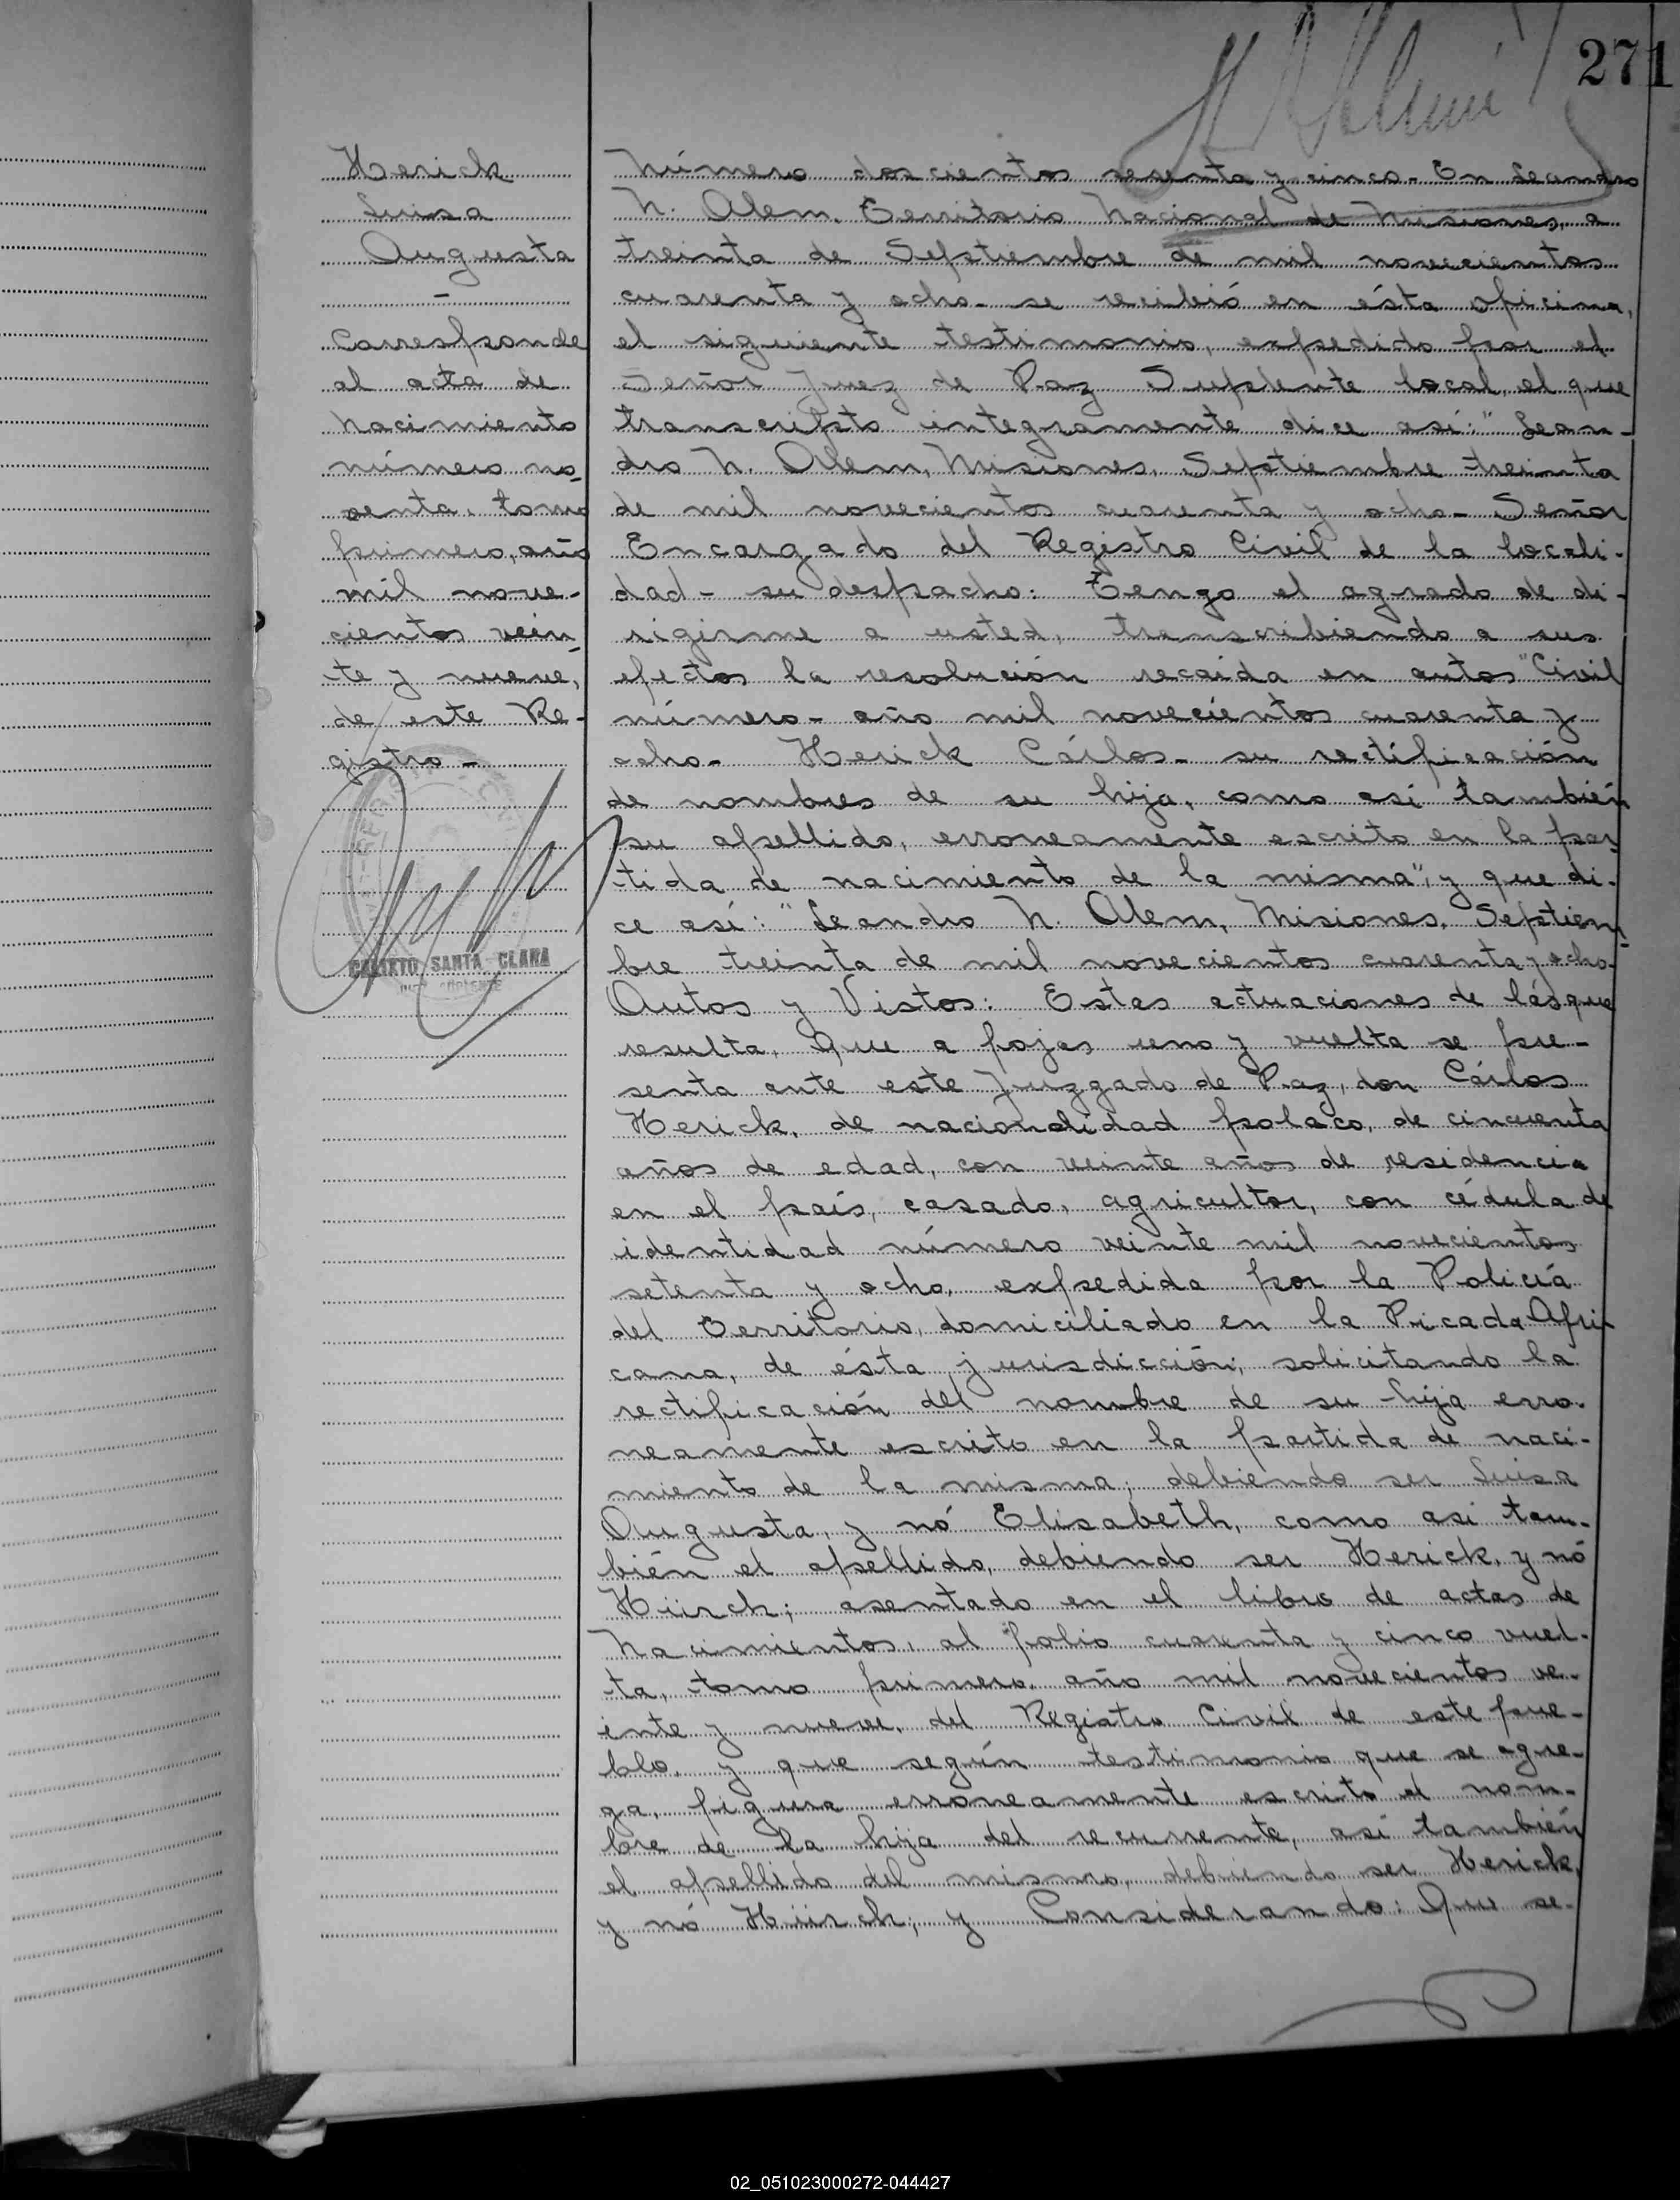 271
Herick
Luisa
Augusta
-
Corresponde
al acta de
nacimiento
número no-
venta, tomo
primero, año
mil nove-
cientos vein-
te y nueve,
de este Re-
gistro-
CALIXTO SANTA CLARA
Número doscientos sesenta y cinco- En Leandro
N. Alem, Territorio Nacional de Misiones, a
treinta de Septiembre de mil novecientos
cuarenta y ocho- se recibió en ésta oficina,
el siguiente testimonio, expedido por el
Señor Juez de Paz Suplente local, el que
transcripto integramente dice así: "Lean-
dro N. Alem, Misiones, Septiembre treinta
de mil novecientos cuarenta y ocho- Señor
Encargado del Registro Civil de la locali-
dad- su despacho: Tengo el agrado de di-
rigirme a usted, transcribiendo a sus
efectos la resolución recaída en autos "Civil
número- año mil novecientos cuarenta y
ocho- Herick Cárlos- su rectificación
de nombres de su hija, como asi también
su apellido, erroneamente escrito en la par-
tida de nacimiento de la misma", y que di-
ce así: "Leandro N. Alem, Misiones, Septiem-
bre treinta de mil novecientos cuarenta y ocho-
Autos y Vistos: Estas actuaciones de las que
resulta, Que a fojas uno y vuelta se pre-
senta ante este Juzgado de Paz, don Cárlos
Herick, de nacionalidad polaco, de cincuenta
años de edad, con veinte años de residencia
en el país, casado, agricultor, con cédula de
identidad número veinte mil novecientos
setenta y ocho, expedida por la Policía
del Territorio, domiciliado en la Picada Afri-
cana, de ésta jurisdicción; solicitando la
rectificación del nombre de su hija erro-
neamente escrito en la partida de naci-
miento de la misma; debiendo ser Luisa
Augusta, y nó Elisabeth, como asi tam-
bién el apellido, debiendo ser Herick, y nó
Hüirch; asentado en el libro de actas de
Nacimientos, al folio cuarenta y cinco vuel-
ta, tomo primero, año mil novecientos ve-
inte y nueve, del Registro Civil de este pue-
blo, y que según testimonio que se agre-
ga, figura erroneamente escrito el nom-
bre de la hija del recurrente, asi también
el apellido del mismo, debiendo ser Herick,
y nó Hüirch; y Considerando: Que se-
02_051023000272-044427